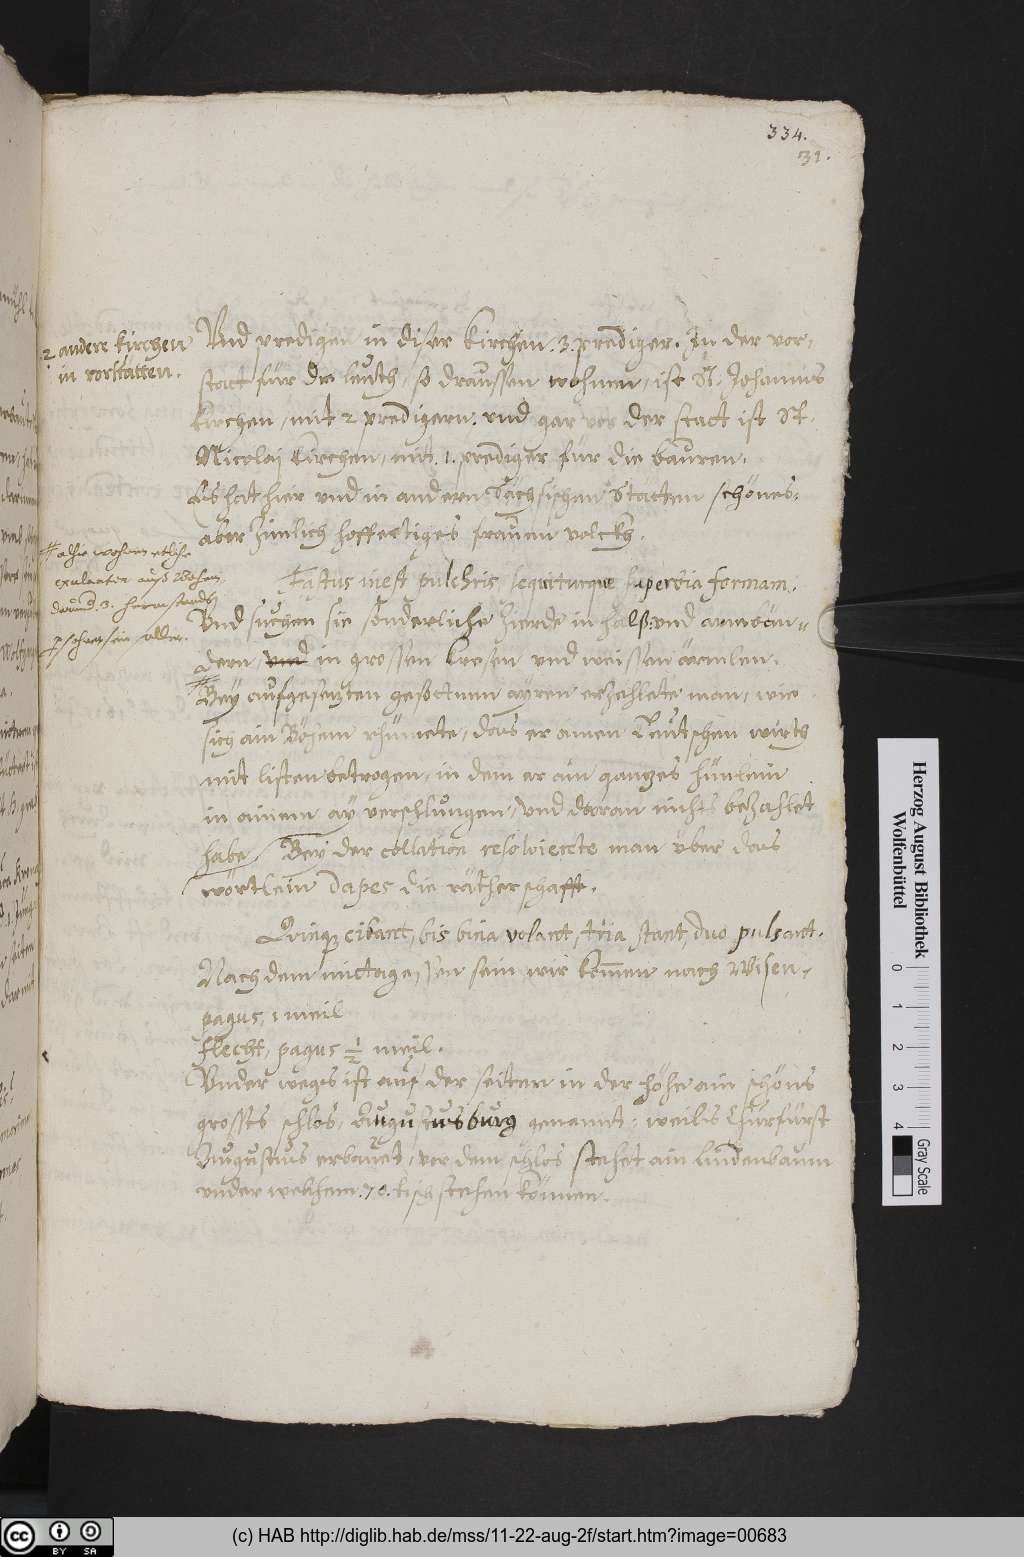 334.
31.
2 andere kirchen
in vorstatten.
Vnd predigen in diser kirchen .3. prediger. In der vor-
statt für die leuth, so draussen wohnen, ist St. Johannis
kirchen, mit 2 predigern. vnd gar vor der statt ist St.
Nicolaj kirchen, mit .1. prediger für die bauren.
Es hat hier vnd in andern Sächsischen Stätten schönes,
aber zimlich hoffertiges frauen volckh.
# alhie wohnen etliche
exulanten auß Böhem,
darund. 3. herrnstandts
Fastus inest pulchris sequiturque superbia formam.
Vnd suchen sie sonderliche zierde in halß: vnd armbän-
dern, vnd in grossen kresen, vnd weissen ärmlen.
# Bey aufgesetzten gesottnen ayren erzehlete man, wie
sich ain Böhem rhümete, das er ainen Teutschen wirth
mit listen betrogen, in dem er ain gantzes hünlein
in ainem ay verschlungen, vnd daran nichts bezahlet
habe. Bey der collation resolvierete man über das
wörtlein Dapes die rätherschafft.
Quinque cibant, bis bina volant, tria stant, duo pulsant.
Nach dem mittagessen sein wir kommen nach Wisen-
pagus, 1 meil
Flecht, pagus 1/2 meil.
Vnder weges ist auf der seiten in der höhe ain schöns
grosses schlos, Augustusburg genannt, weil es Churfürst
Augustus erbauet, vor dem schlos stehet ain lindenbaum
vnder welchem .70. tisch stehen können.
Herzog August Bibliothek
Wolfenbüttel
0 1 2 3 4
Gray Scale
cc BY SA
(c) HAB http://diglib.hab.de/mss/11-22-aug-2f/start.htm?image=00683